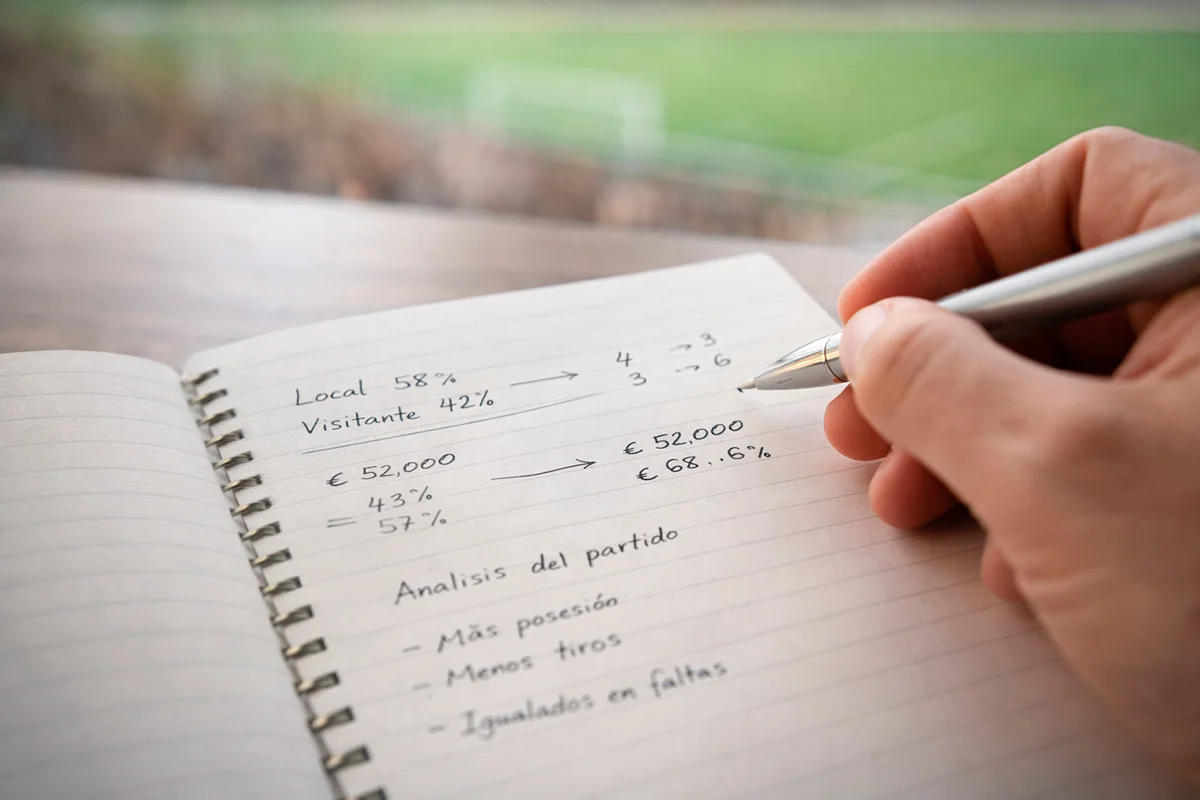 Local 58% → 4 → 3
Visitante 42% 3 → 6
€ 52,000 → € 52,000
= 43% € 68..6%
57%
Analisis del partido
- Más posesión
- Menos tiros
- Igualados en faltas